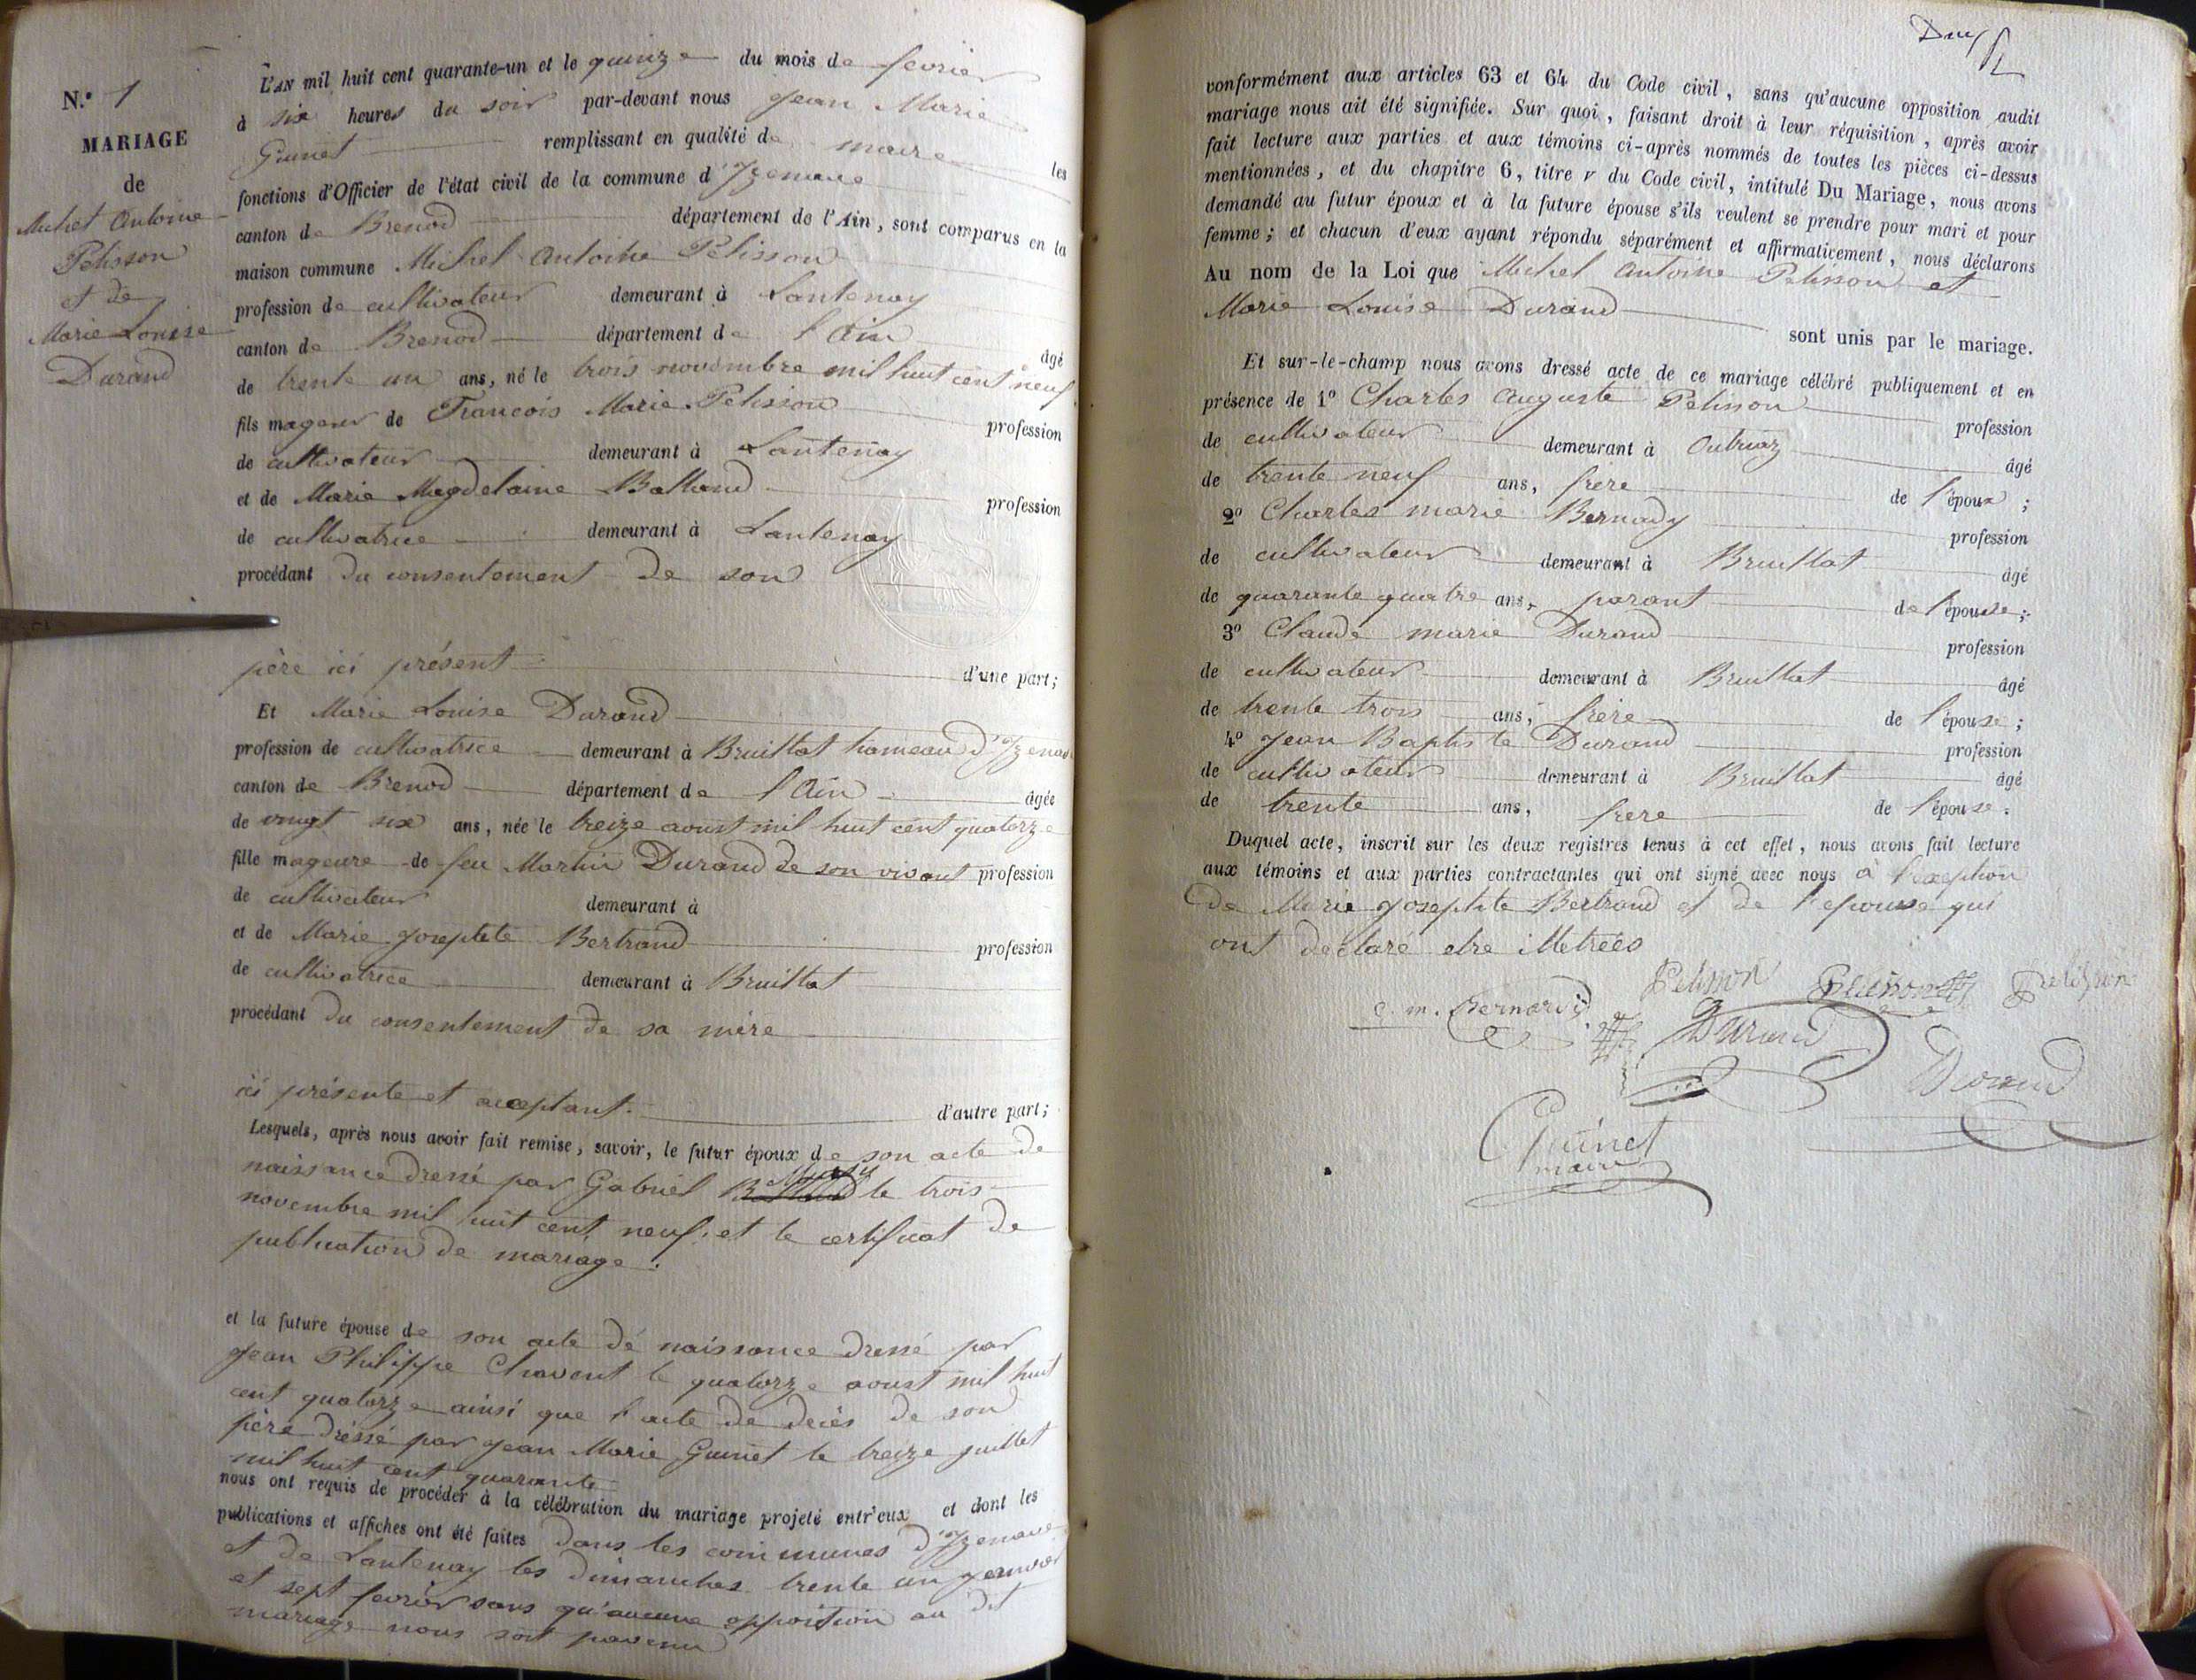 N.° 1
MARIAGE
de
Michel Antoine
Pelisson
et de
Marie Louise
Durand
L'AN mil huit cent quarante-un et le quinze du mois de fevrier
à six heures du soir par-devant nous Jean Marie
Guinet remplissant en qualité de maire les
fonctions d'Officier de l'état civil de la commune d'Izenave
canton de Brenod département de l'Ain, sont comparus en la
maison commune Michel Antoine Pelisson
profession de cultivateur demeurant à Lantenay
canton de Brenod département de l'Ain âgé
de trente un ans, né le trois novembre mil huit cent neuf
fils mageur de Francois Marie Pelisson profession
de cultivateur demeurant à Lantenay
et de Marie Magdelaine Balland profession
de cultivatrice demeurant à Lantenay
procédant du consentement de son
père ici présent d'une part;
Et Marie Louise Durand
profession de cultivatrice demeurant à Bruillat hameau d'Izenave
canton de Brenod département de l'Ain âgée
de vingt six ans, née le treize aoust mil huit cent quatorze
fille mageure de feu Martin Durand de son vivant profession
de cultivateur demeurant à
et de Marie Josephte Bertrand profession
de cultivatrice demeurant à Bruillat
procédant du consentement de sa mère
ici présente et acceptant. d'autre part;
Lesquels, après nous avoir fait remise, savoir, le futur époux de son acte de
naissance dressé par Gabriel le trois
novembre mil huit cent neuf. et le certificat de
publication de mariage.
et la future épouse de son acte dé naissance dressé par
Jean Philippe Chavent le quatorze aoust mil huit
cent quatorze ainsi que l'acte de decès de son
père dréssé par Jean Marie Guinet le treize juillet
mil huit cent quarante
nous ont requis de procéder à la célébration du mariage projeté entr'eux et dont les
publications et affiches ont été faites dans les communes d'Izenave
et de Lantenay les dimanches trente un janvier
et sept fevrier sans qu'aucune opposition au dit
mariage nous soit parvenu
conformément aux articles 63 et 64 du Code civil, sans qu'aucune opposition audit
mariage nous ait été signifiée. Sur quoi, faisant droit à leur réquisition, après avoir
fait lecture aux parties et aux témoins ci-après nommés de toutes les pièces ci-dessus
mentionnées, et du chapitre 6, titre v du Code civil, intitulé Du Mariage, nous avons
demandé au futur époux et à la future épouse s'ils veulent se prendre pour mari et pour
femme; et chacun d'eux ayant répondu séparément et affirmativement, nous déclarons
Au nom de la Loi que Michel Antoine Pelisson et
Marie Louise Durand
sont unis par le mariage.
Et sur-le-champ nous avons dressé acte de ce mariage célébré publiquement et en
présence de 1° Charles Auguste Pelisson profession
de cultivateur demeurant à Outriaz âgé
de trente neuf ans, frère de l'époux;
2° Charles marie Bernardy profession
de cultivateur demeurant à Bruillat âgé
de quarante quatre ans, parant de l'épouse;
3° Claude marie Durand profession
de cultivateur demeurant à Bruillat âgé
de trente trois ans, frère de l'épouse;
4° Jean Baptiste Durand profession
de cultivateur demeurant à Bruillat âgé
de trente ans, frere de l'épouse.
Duquel acte, inscrit sur les deux registres tenus à cet effet, nous avons fait lecture
aux témoins et aux parties contractantes qui ont signé avec nous à l'exeption
De Marie Josephte Bertrand et de l'epouse qui
ont déclaré etre illetrées
Pelisson Pelisson Pelisson
c. m. Bernardy Durand Durand
Guinet
maire